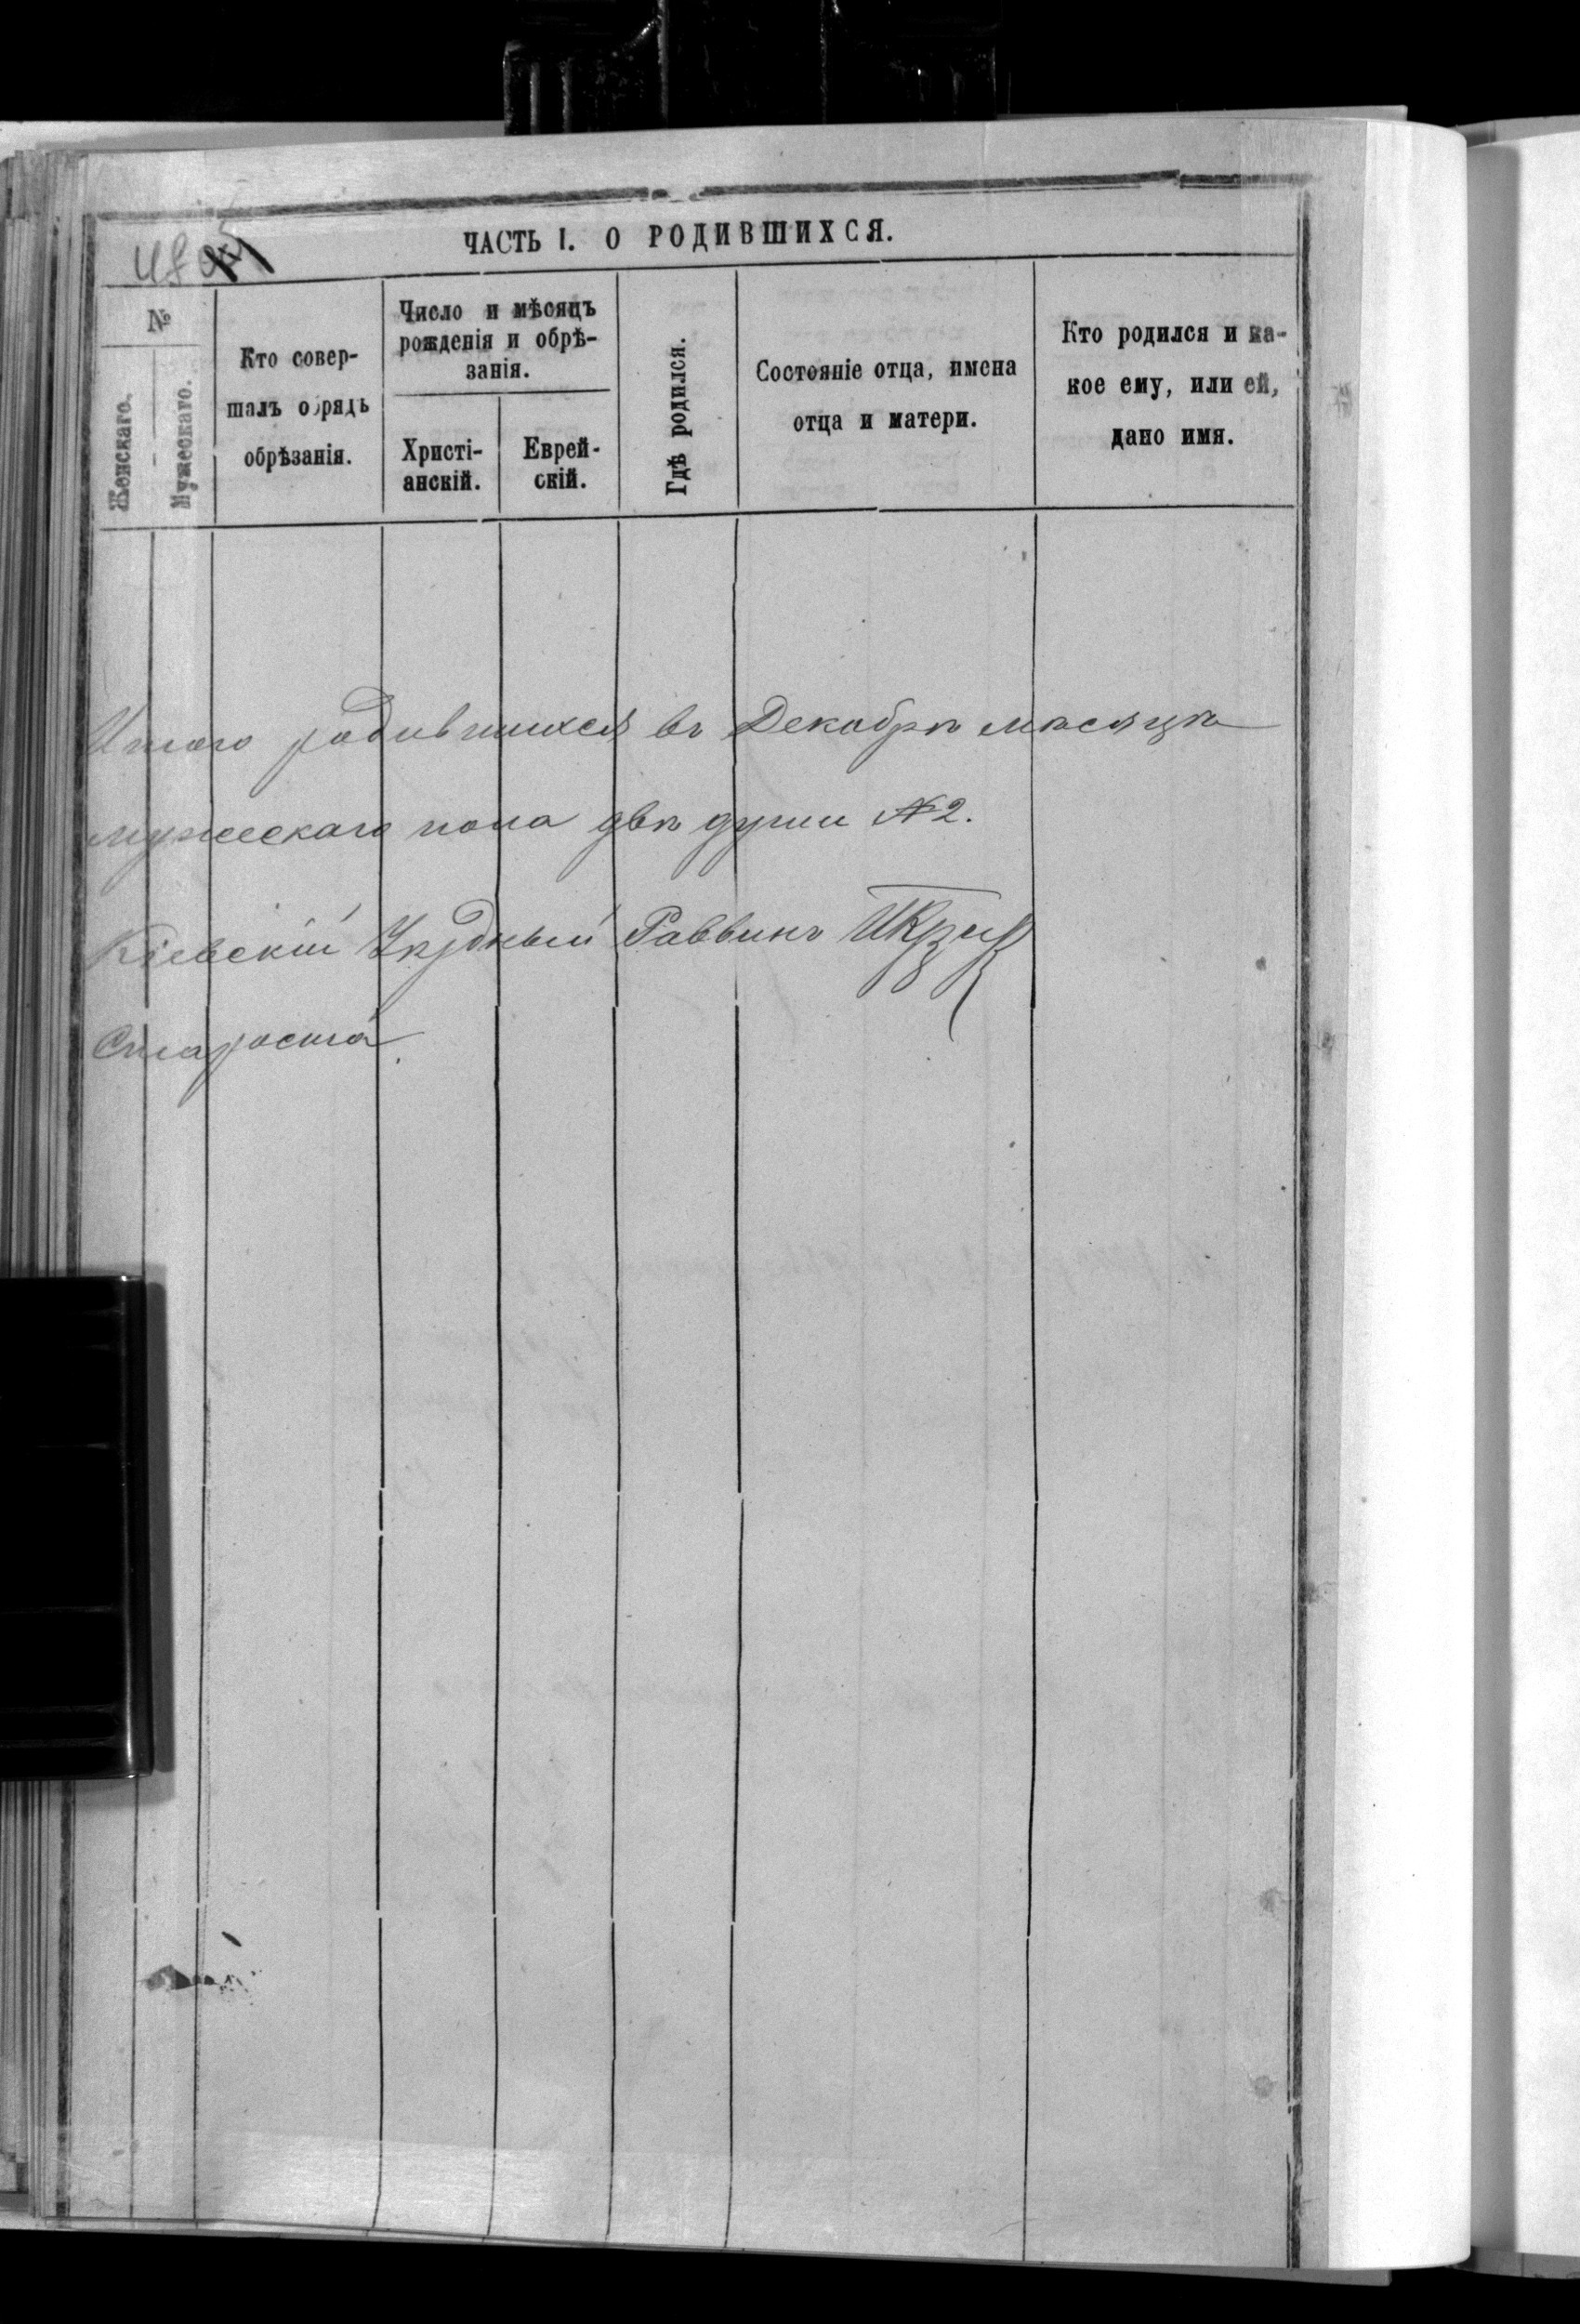 ЧАСТЬ I. О РОДИВШИХСЯ.
№
Женскаго.
Мужескаго.
Кто совер-
шалъ обрядъ
обрѣзанія.
Число и мѣсяцъ
рожденія и обрѣ-
занія.
Христі-
анскій.
Еврей-
скій.
Гдѣ родился.
Состояніе отца, имена
отца и матери.
Кто родился и ка-
кое ему, или ей,
дано имя.
Итого родившихся въ Декабрѣ мѣсяцѣ
мужескаго пола двѣ души № 2.
Кіевскій Уѣздный Раввинъ
Староста